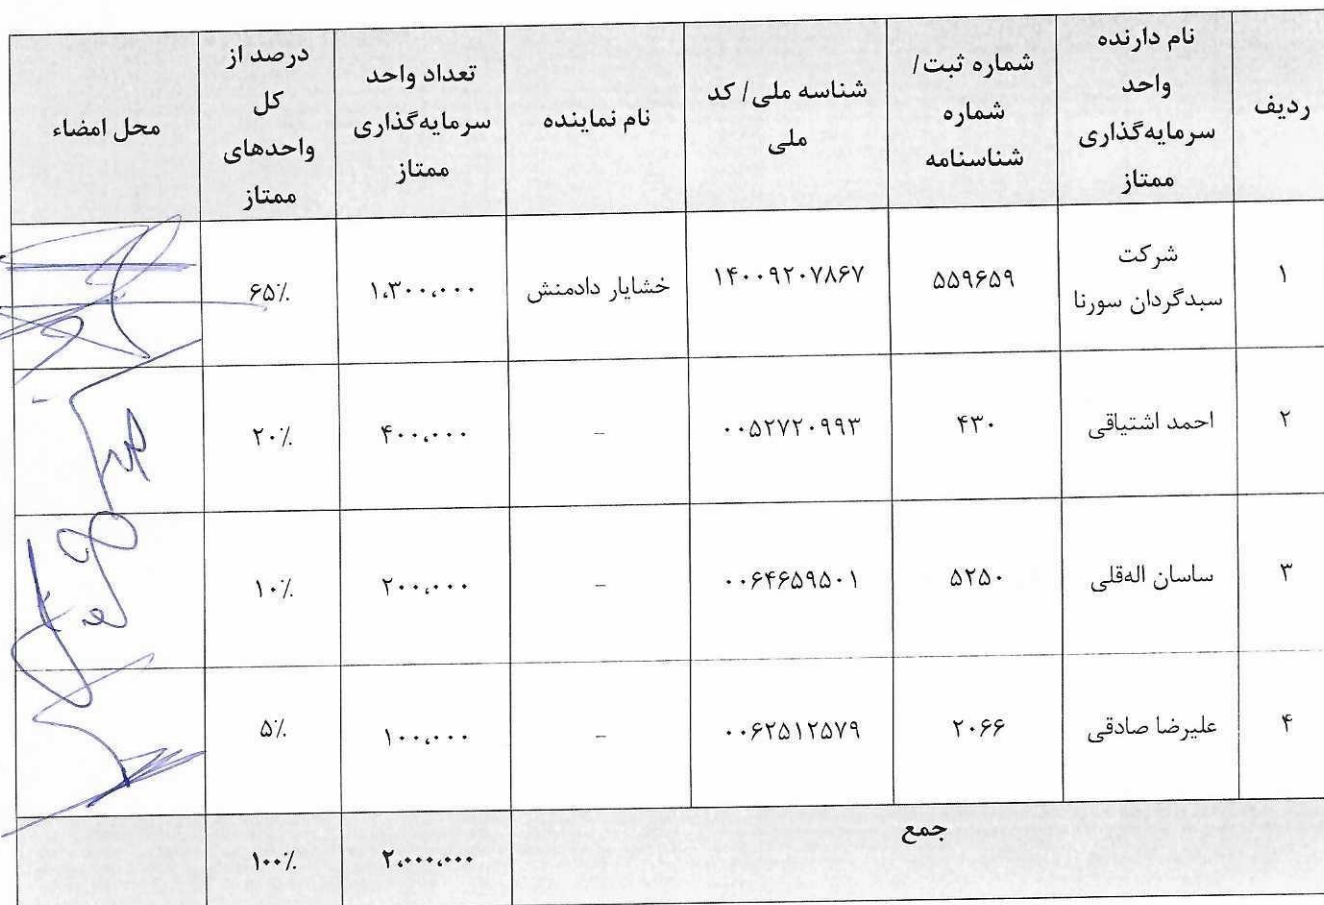 ردیف
نام دارنده
واحد
سرمایه‌گذاری
ممتاز
شماره ثبت/
شماره
شناسنامه
شناسه ملی/ کد
ملی
نام نماینده
تعداد واحد
سرمایه‌گذاری
ممتاز
درصد از
کل
واحدهای
ممتاز
محل امضاء
۱
شرکت
سبدگردان سورنا
۵۵۹۶۵۹
۱۴۰۰۹۲۰۷۸۶۷
خشایار دادمنش
۱،۳۰۰،۰۰۰
۶۵٪
۲
احمد اشتیاقی
۴۳۰
۰۰۵۲۷۲۰۹۹۳
–
۴۰۰،۰۰۰
۲۰٪
۳
ساسان اله‌قلی
۵۲۵۰
۰۰۶۴۶۵۹۵۰۱
–
۲۰۰،۰۰۰
۱۰٪
۴
علیرضا صادقی
۲۰۶۶
۰۰۶۲۵۱۲۵۷۹
–
۱۰۰،۰۰۰
۵٪
جمع
۲،۰۰۰،۰۰۰
۱۰۰٪